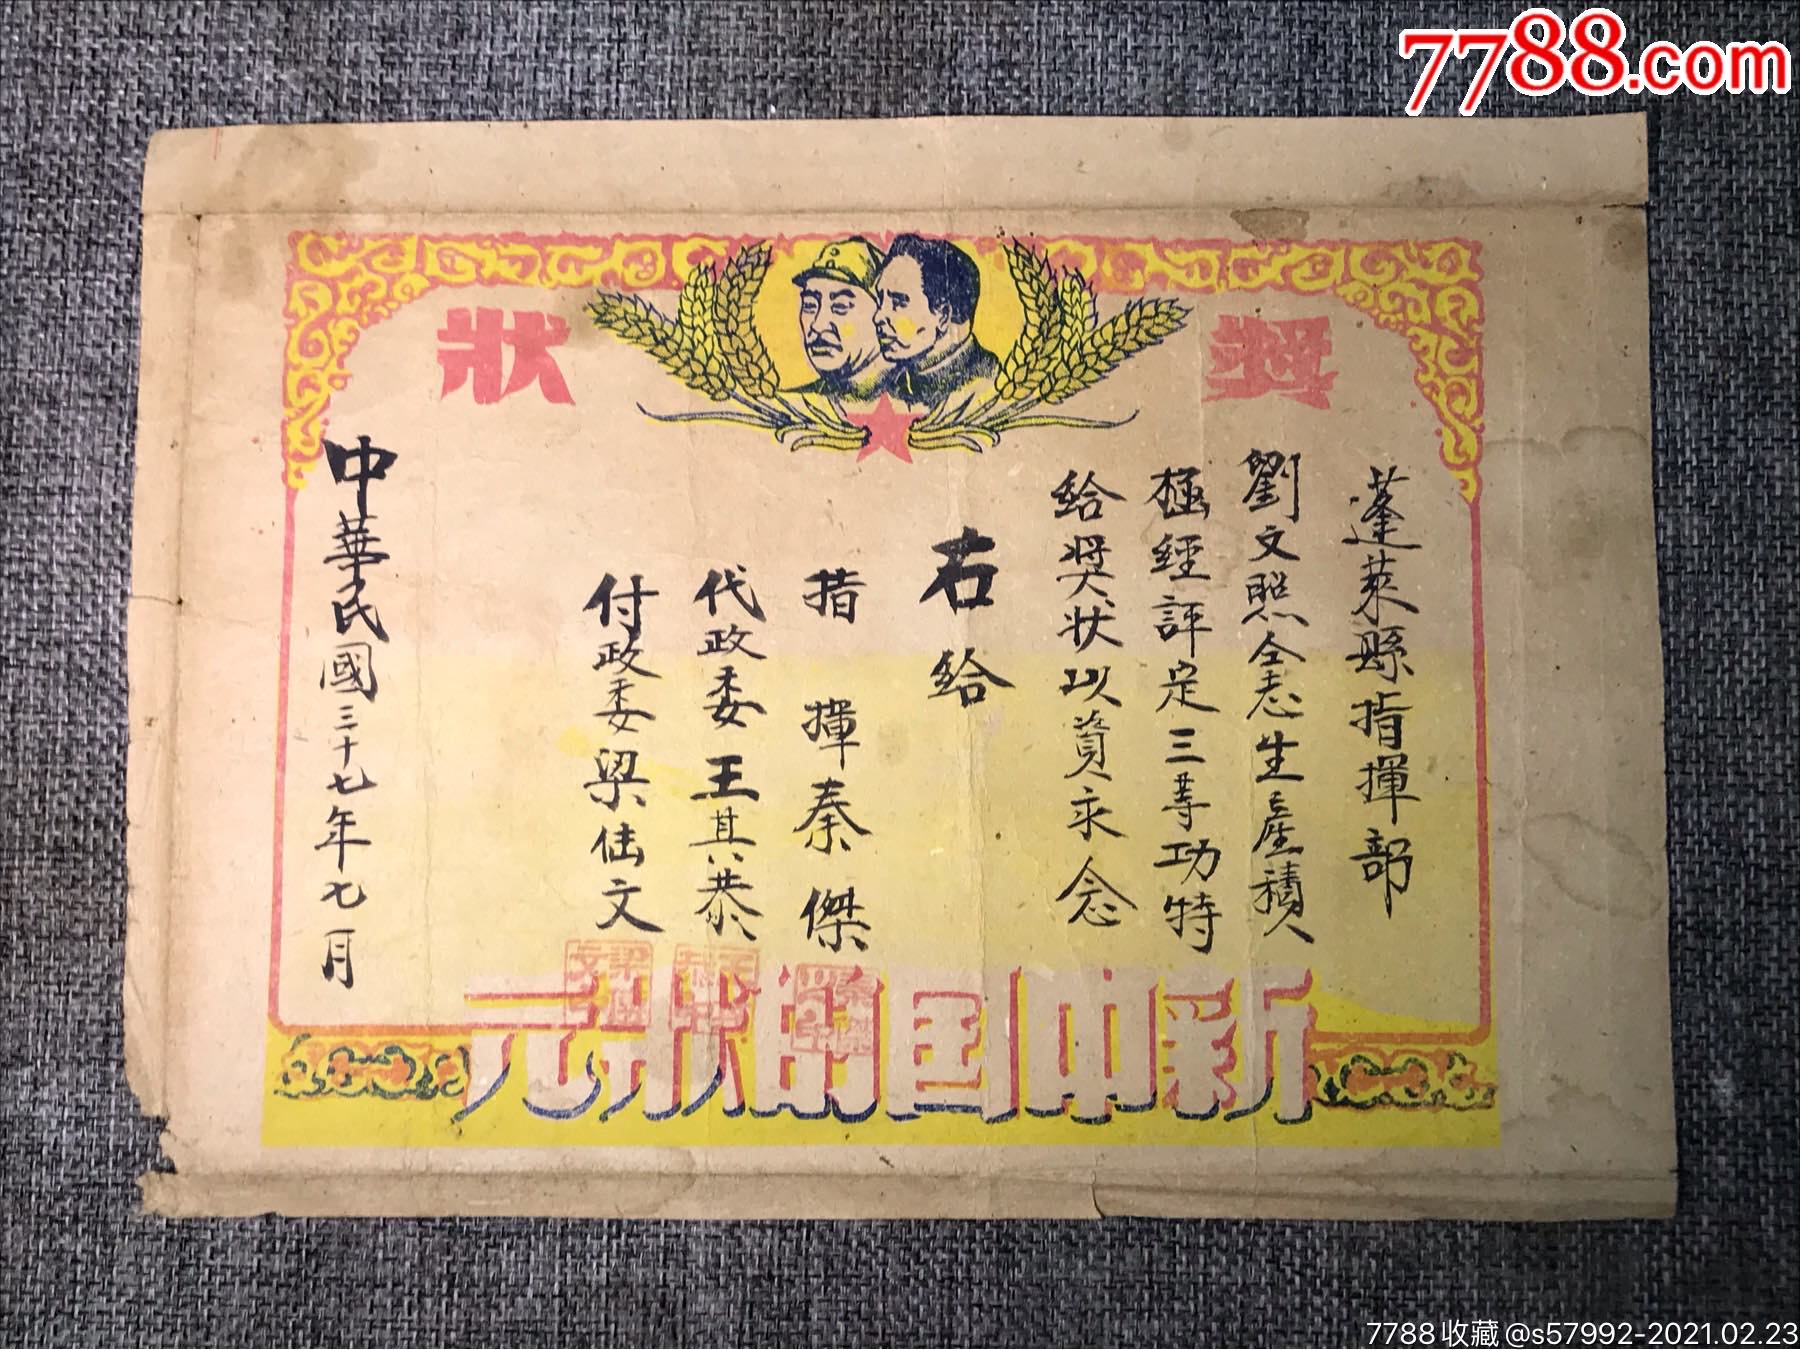 7788.com
獎狀
蓬萊縣指揮部
劉文照仝志生產積
極經評定三等功特
給奖状以資永念
右給
指揮秦傑
代政委王其恭
付政委梁
文
中華民國三十七年七月
新中国的狀元
7788收藏@s57992-2021.02.23